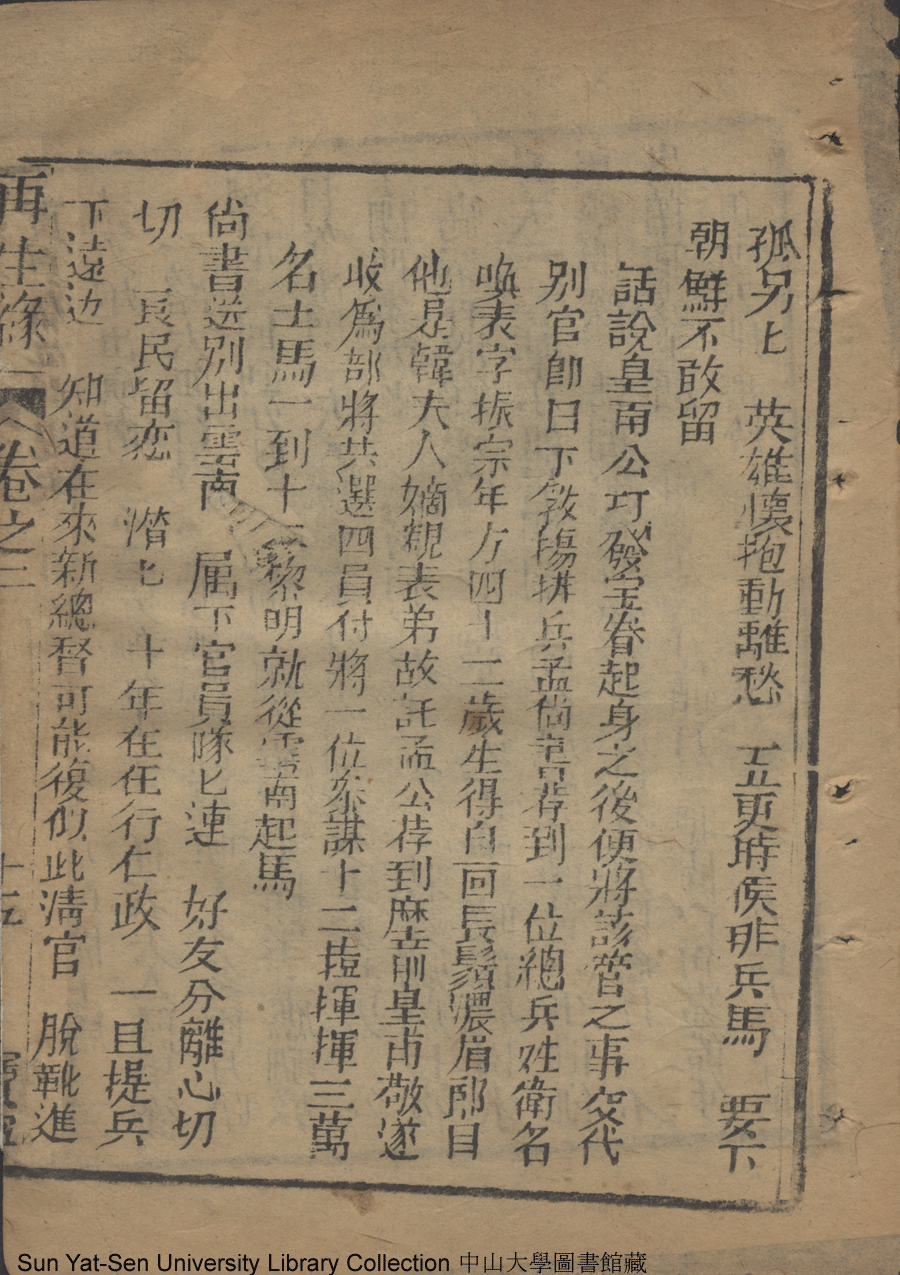 孤另匕　英雄懷抱動離愁　五更時候排兵馬　要下
朝鮮不敢留
話說皇甫公打發宝眷起身之後便將該管之事交代
別官卽日下敎塲排兵孟尙書荐到一位總兵姓衛名
喚表字振宗年方四十二歲生得白面長鬚濃眉郎目
他是韓夫人嫡親表弟故託孟公荐到麾前皇甫敬遂
收爲部將共選四員付將一位叅謀十二指揮揮三萬
名士馬一到十二黎明就從雲南起馬
尙書送別出雲南　属下官員隊匕連　好友分離心切
切　良民留恋　潸匕　十年在任行仁政　一旦提兵
下遠边　知道在來新總督可能復似此淸官　脫靴進
再生緣　卷之三　十五　寶寧
Sun Yat-Sen University Library Collection 中山大學圖書館藏